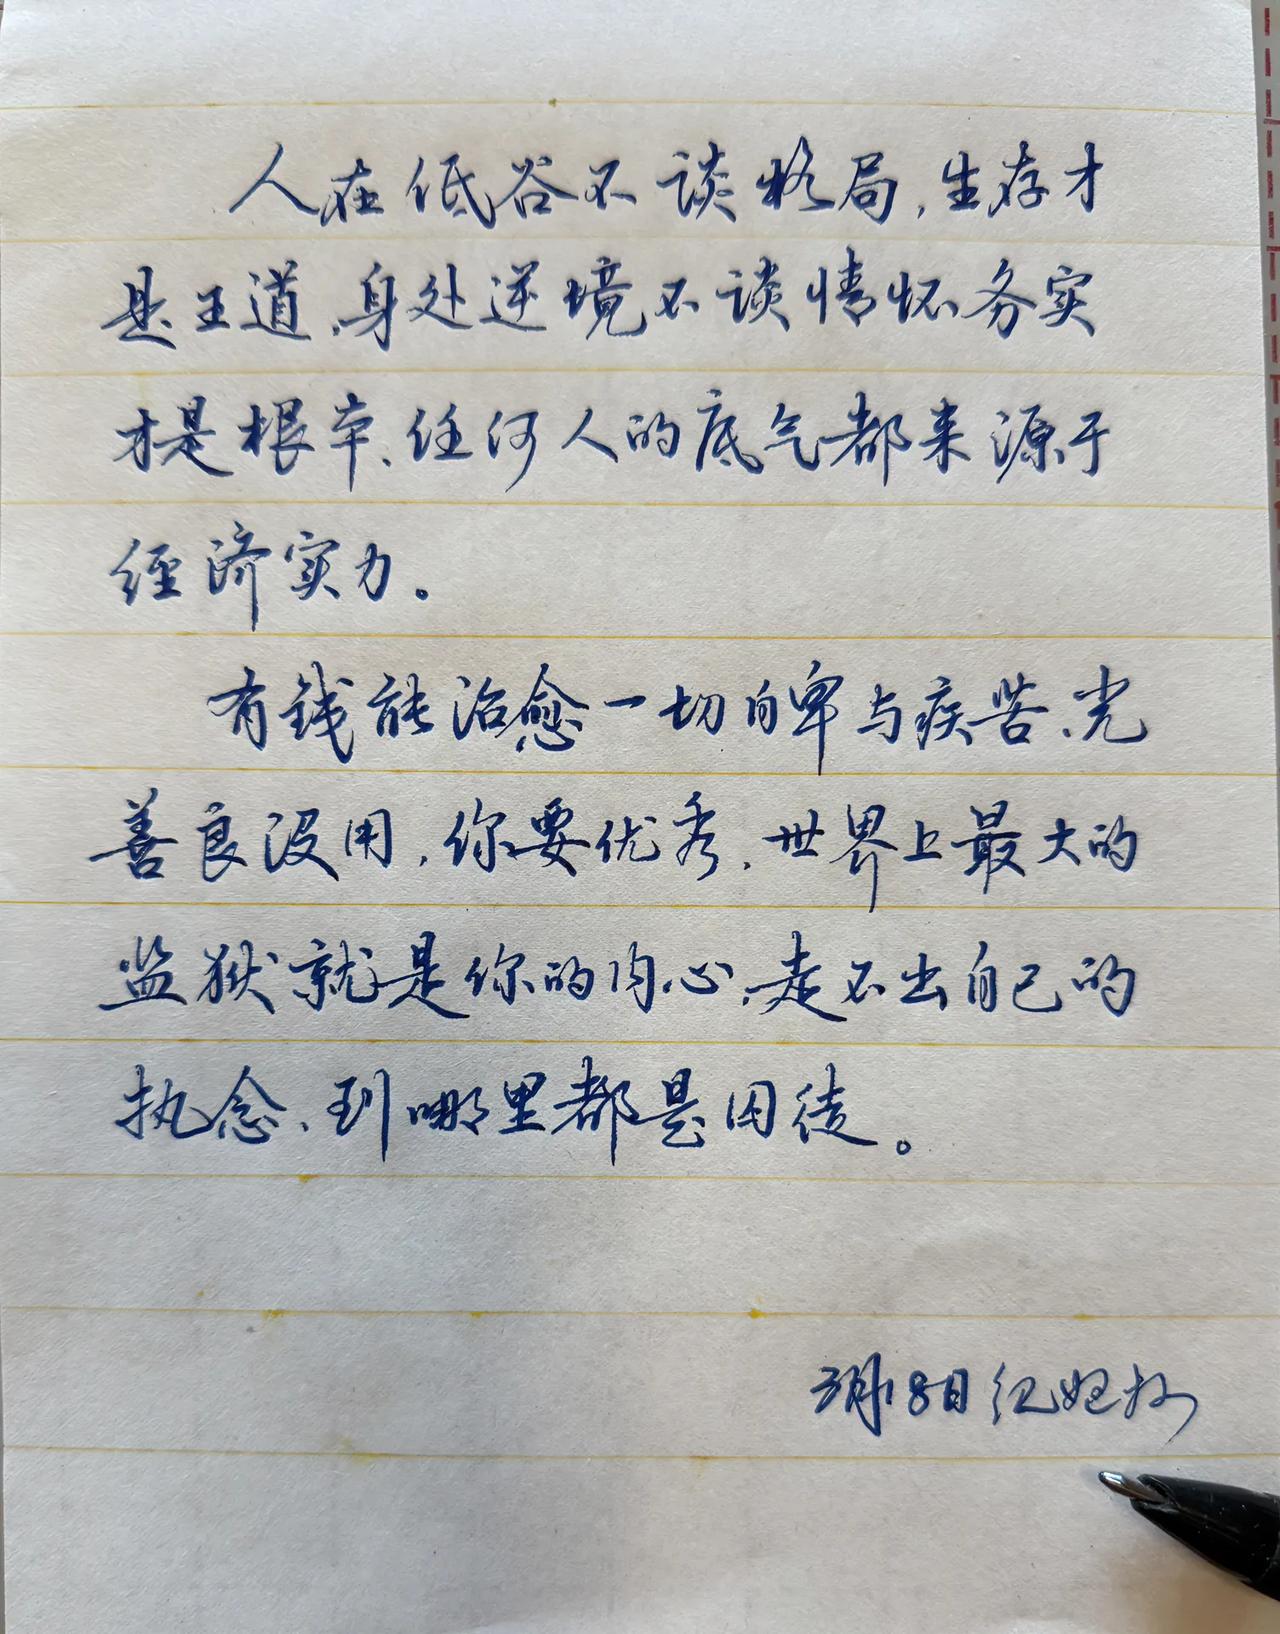 人在低谷不谈格局,生存才
是王道,身处逆境不谈情怀务实
才是根本、任何人的底气都来源于
经济实力。
有钱能治愈一切自卑与疾苦、光
善良没用,你要优秀,世界上最大的
监狱就是你的内心,走不出自己的
执念、到哪里都是囚徒。
3月18日